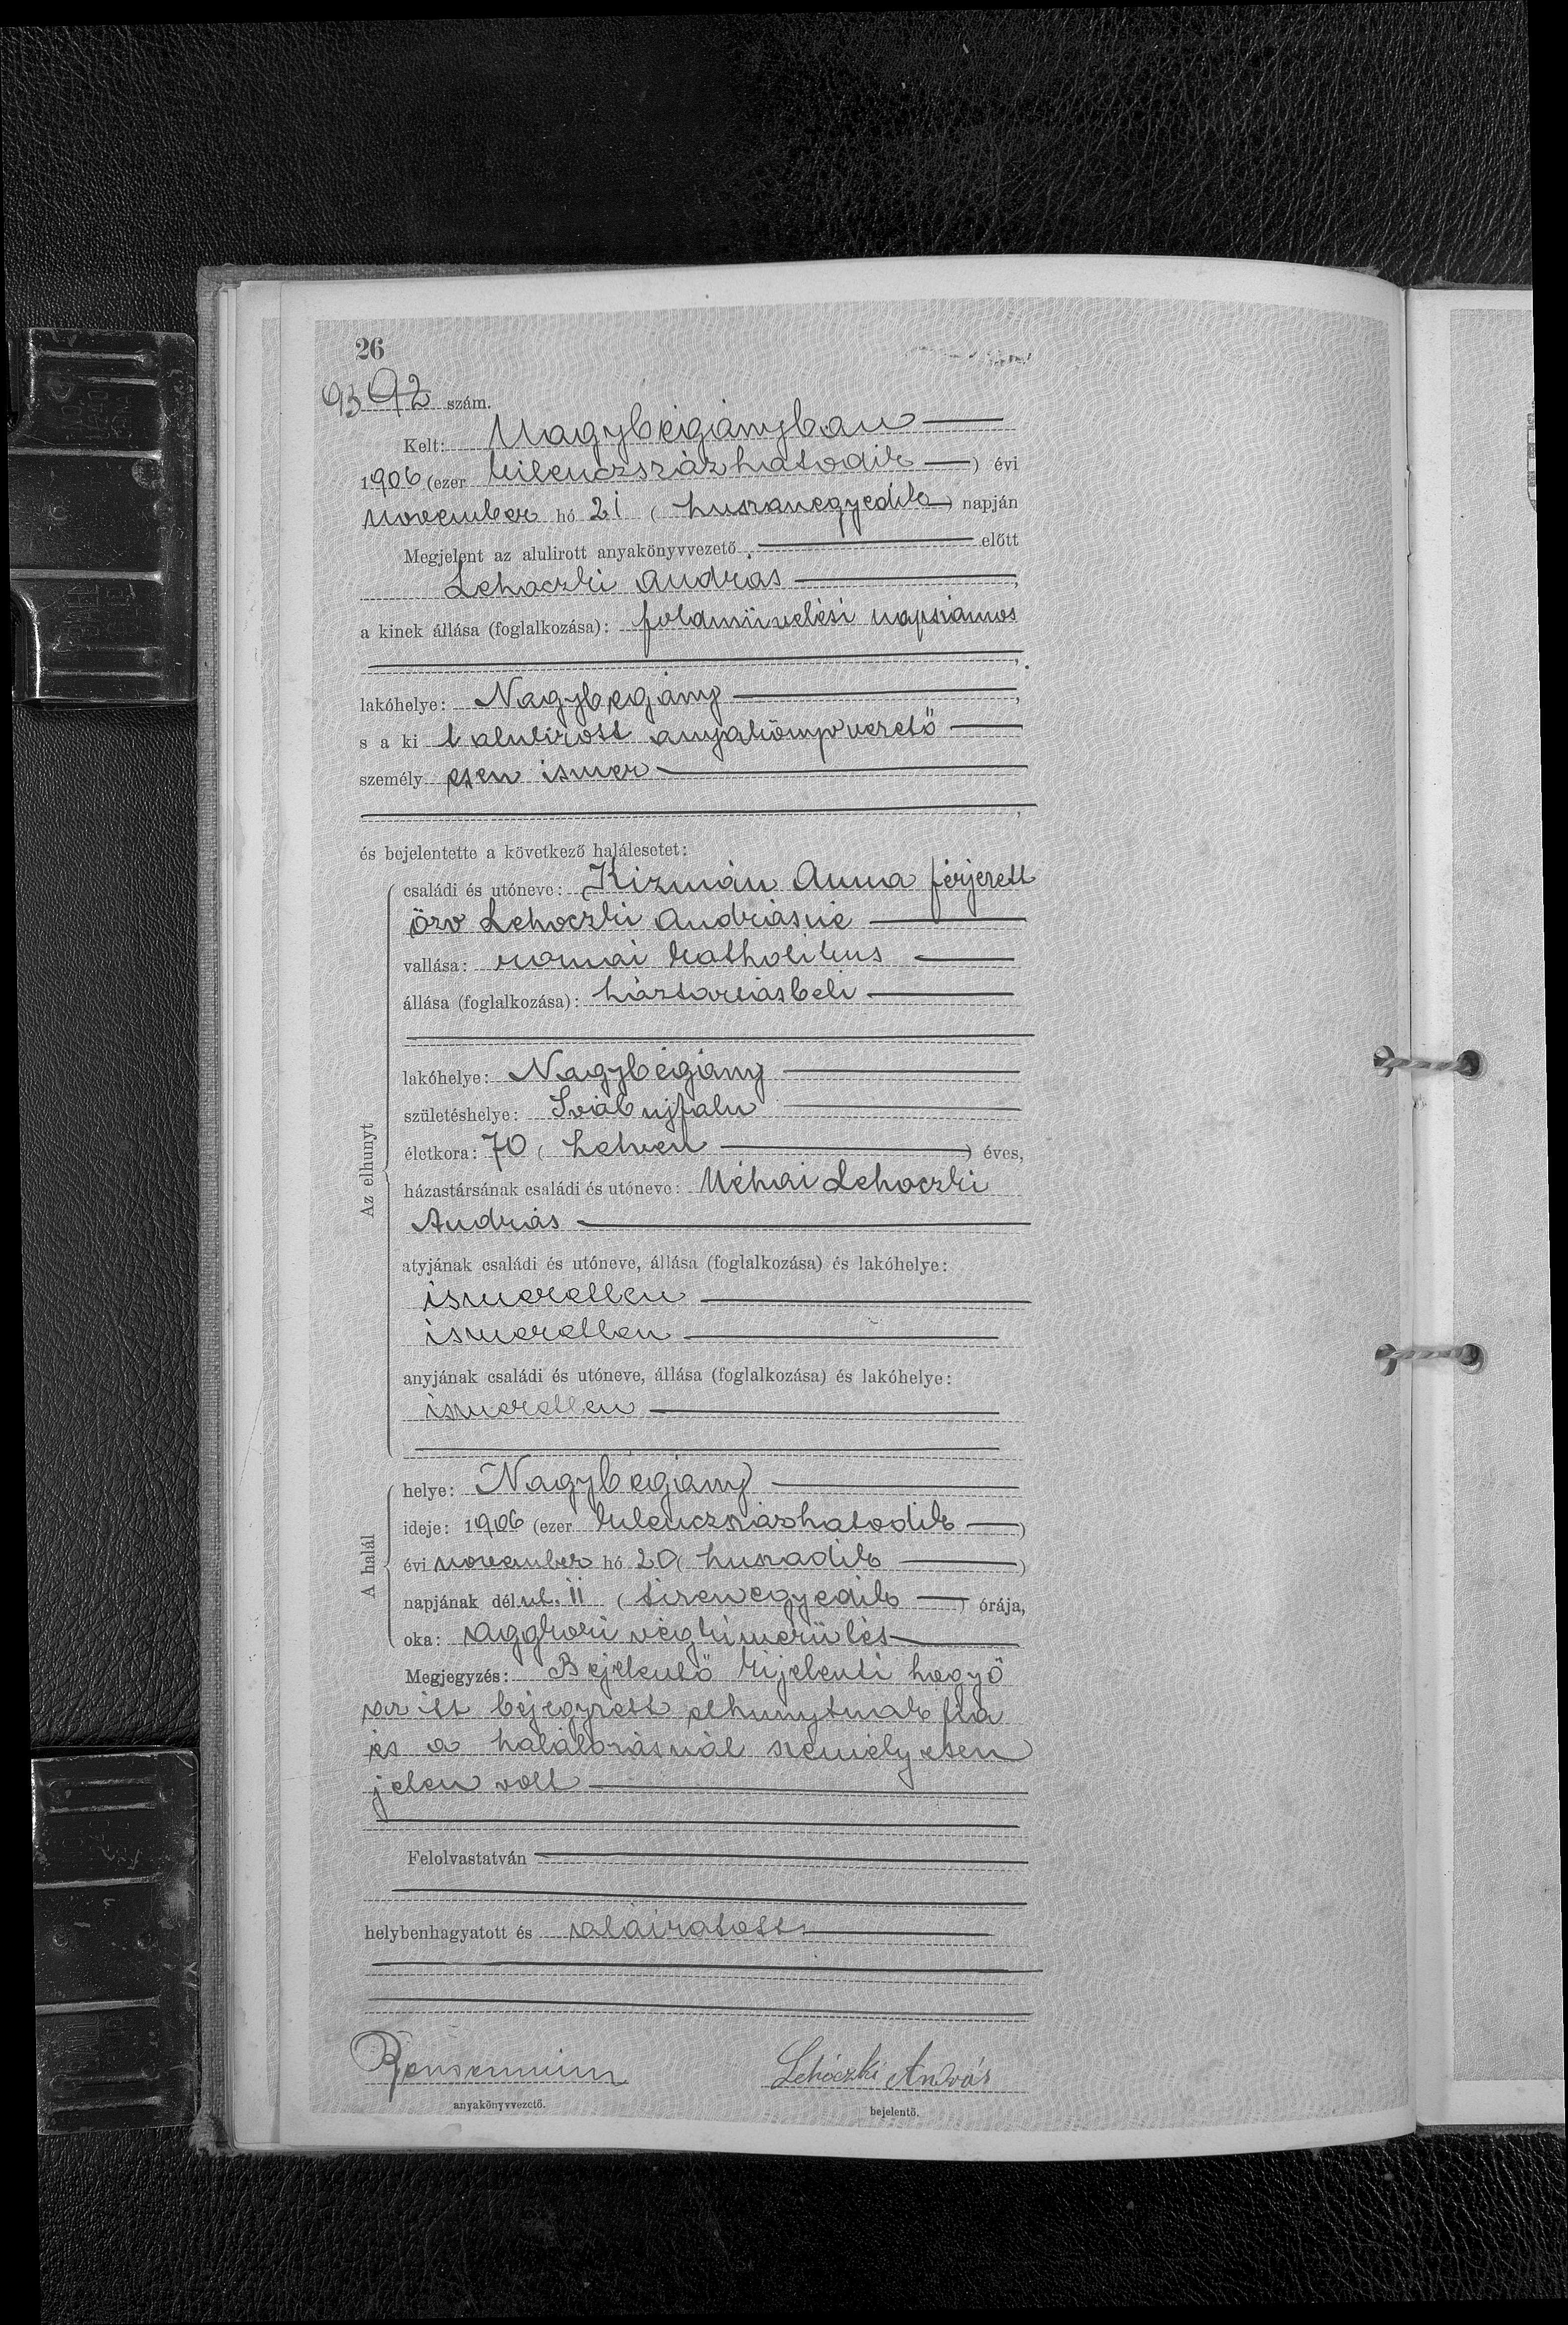 26
93 92 szám.
Kelt: Nagybégányban
1906 (ezer kilenczszázhatodik) évi
november hó 21 (huszanegyedik) napján
Megjelent az alulirott anyakönyvvezető előtt
Lehoczki András,
a kinek állása (foglalkozása): földmüvelési napszámos
lakóhelye: Nagybégány,
s a ki t alulirott anyakönyvvezető
személy esen ismer,
és bejelentette a következő halálesetet:
családi és utóneve: Kizmán Anna férjezett
özv Lehoczki Andrásné
vallása: romai katholikus
állása (foglalkozása): háztartásbeli
lakóhelye: Nagybégány
születéshelye: Svábujfalu
életkora: 70 (hetven) éves,
házastársának családi és utóneve: Néhai Lehoczki
András
atyjának családi és utóneve, állása (foglalkozása) és lakóhelye:
ismeretlen
ismeretlen
anyjának családi és utóneve, állása (foglalkozása) és lakóhelye:
ismeretlen
Az elhunyt
helye: Nagybégány
ideje: 1906 (ezer kilenczszázhatodik)
évi november hó 20 (huszadik)
napjának dél ut. 11 (tizenegyedik) órája,
oka: aggkori végkimerülés
A halál
Megjegyzés: Bejelentő kijelenti hogy ő
az itt bejegyzett elhunytnak fia
és a halálozásnál személyesen
jelen volt
Felolvastatván
helybenhagyatott és aláiratott
Lehóczki András
anyakönyvvezető.
bejelentő.